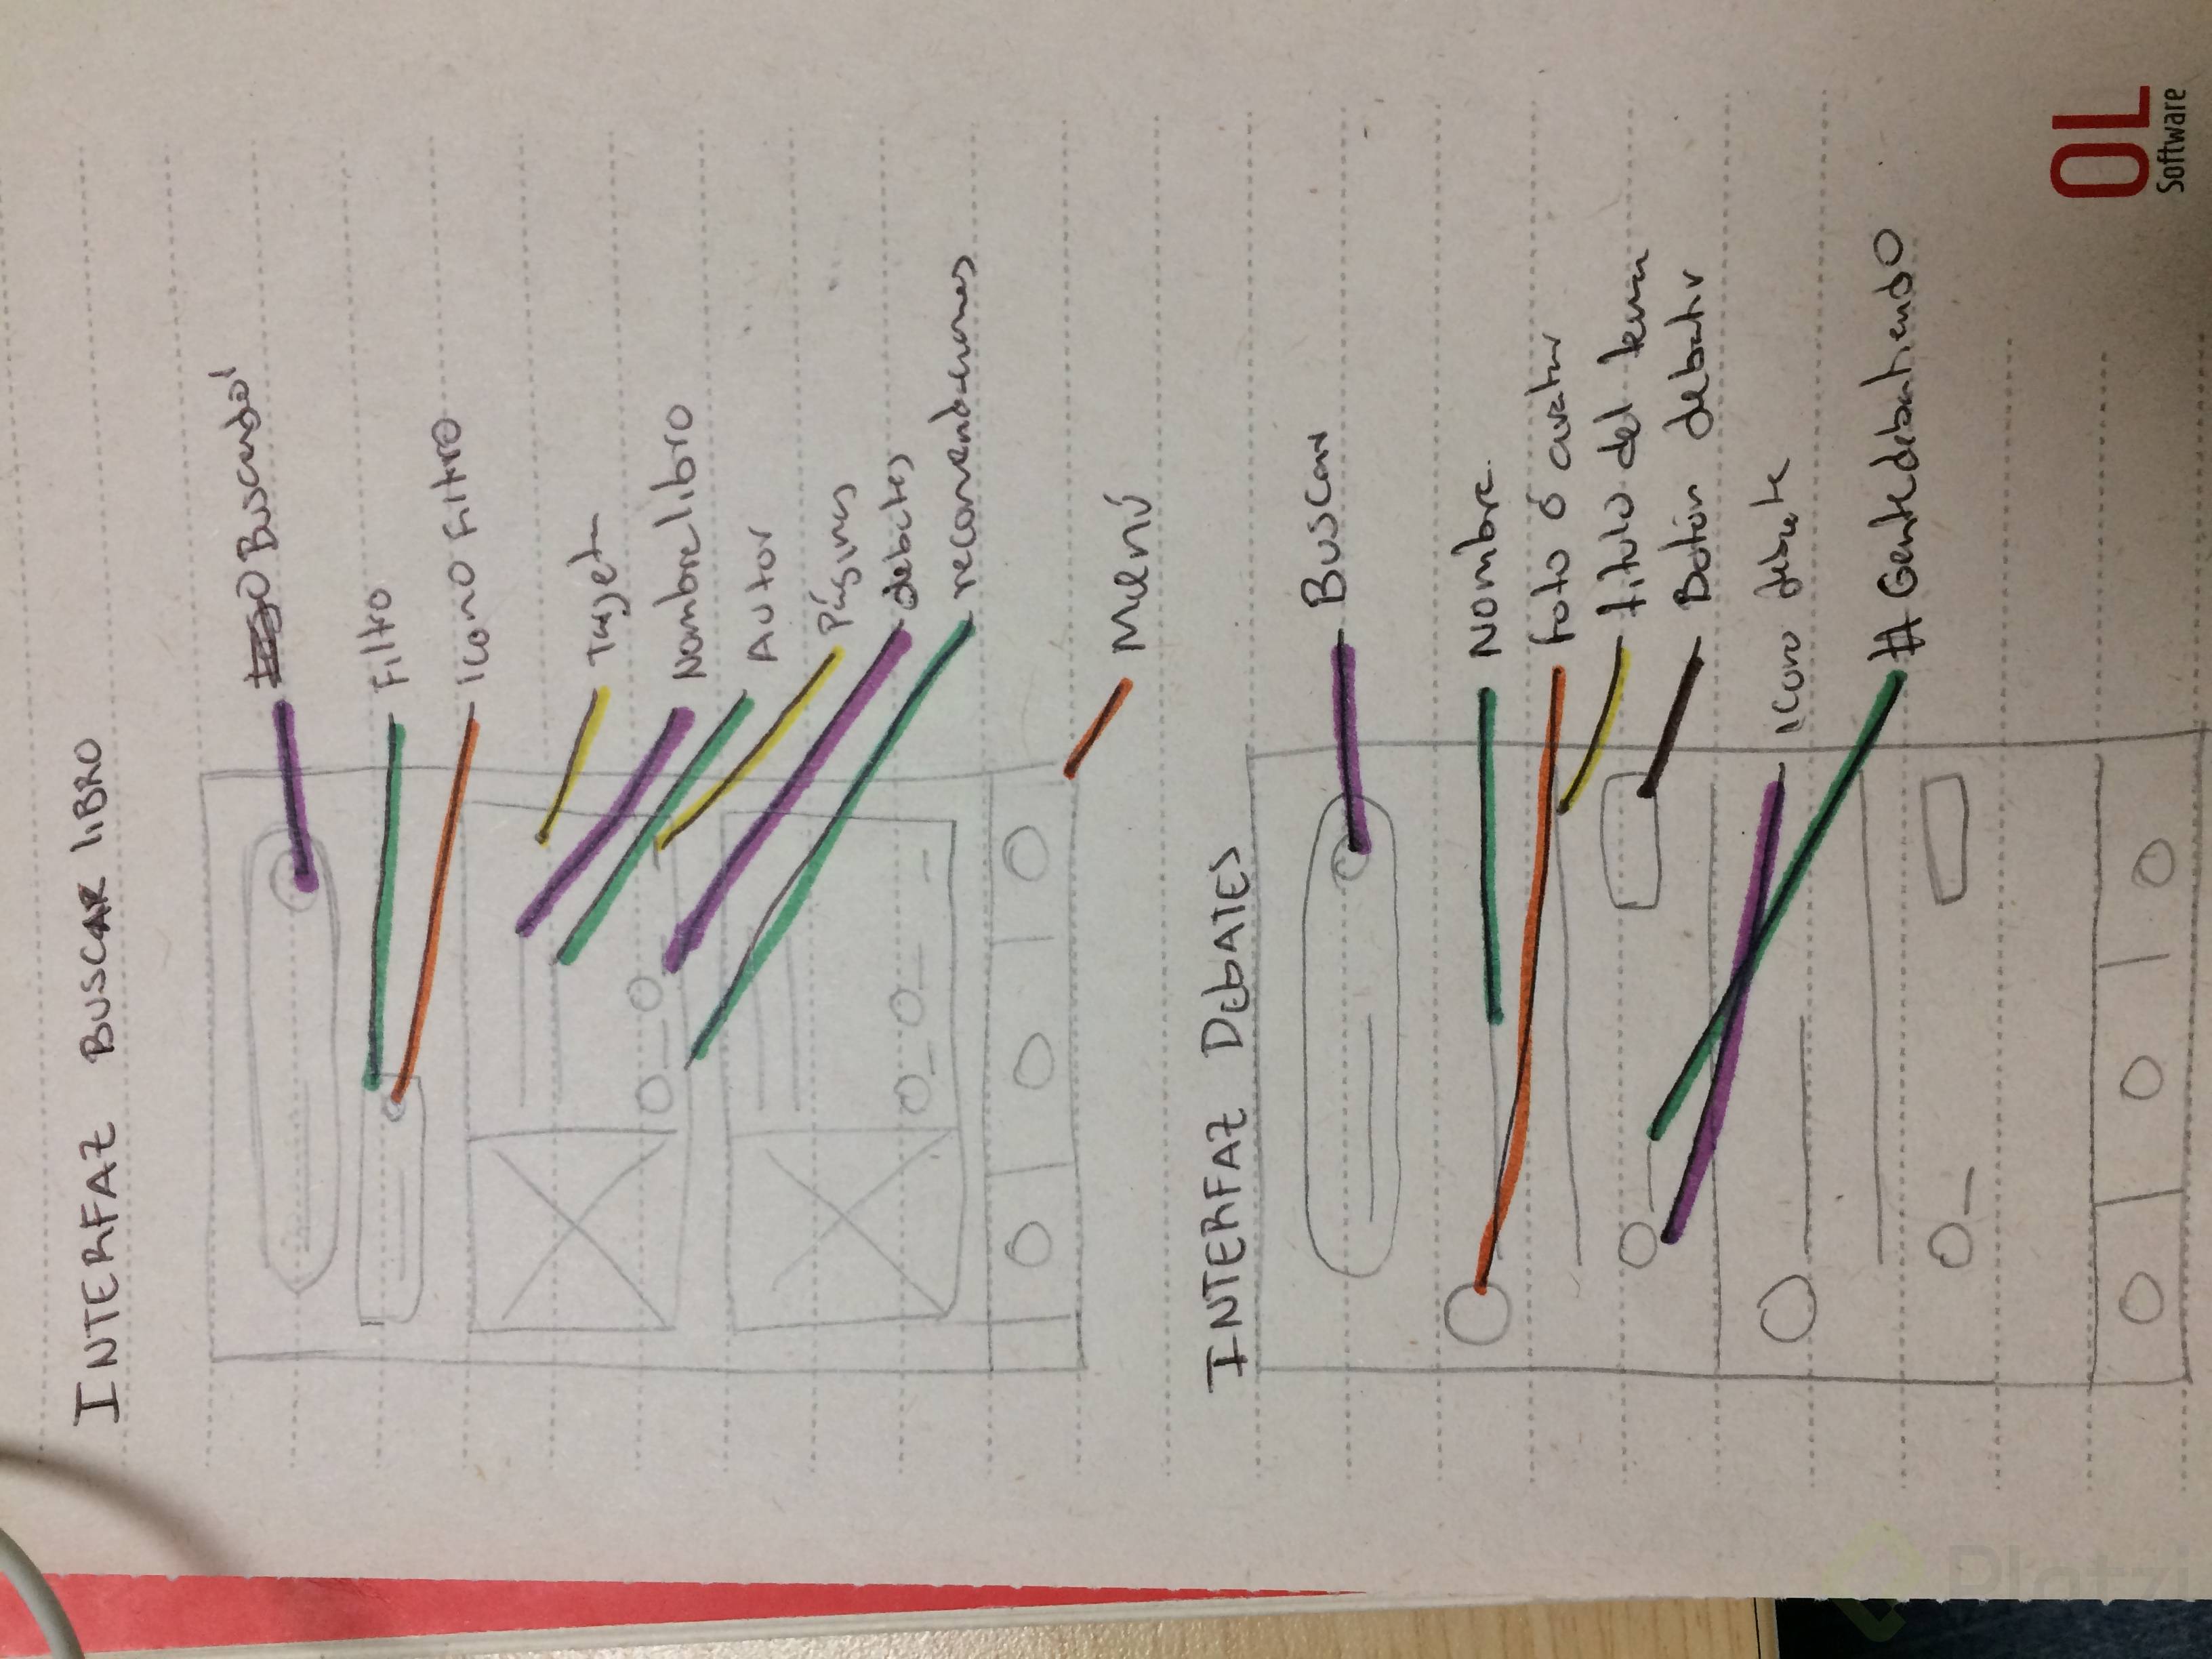 INTERFAZ BUSCAR lIBRO
Buscando'
Filtro
Icono Filtro
Nombre libro
Autor
Páginas
debates
recomendaciones
Menú
INTERFAZ DEbATES
Buscar
Nombre
foto ó avatar
titulo del tema
Botón debatir
icono debate
# Gente debatiendo
OL
Software
Platzi